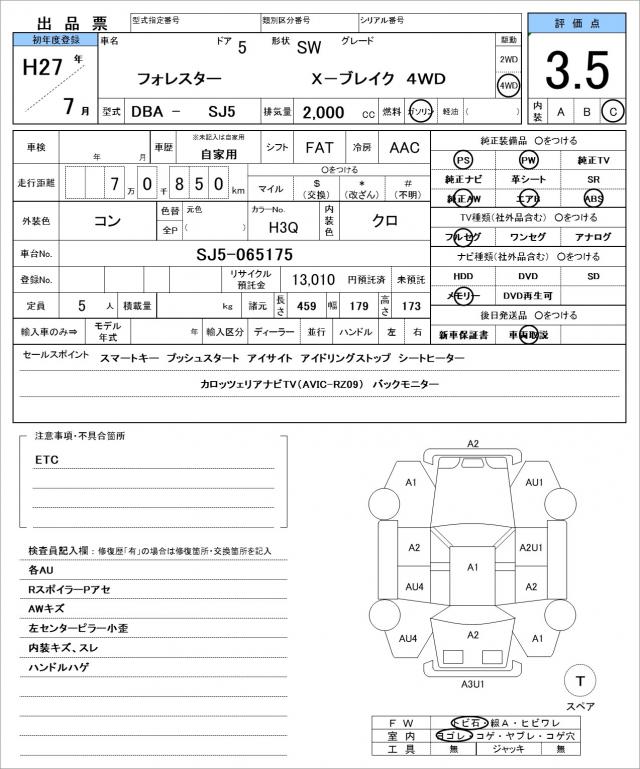 出品票 型式指定番号 類別区分番号 シリアル番号 評価点
初年度登録 車名 ドア 5 形状 SW グレード 駆動
H27 年 フォレスター X－ブレイク 4WD 2WD 3.5
7 月 4WD
型式 DBA － SJ5 排気量 2,000 cc 燃料 ガソリン 軽油 ( ) 内装 A B C
車検 年 月 車歴 ※未記入は自家用 自家用 シフト FAT 冷房 AAC 純正装備品 〇をつける
PS PW 純正TV
走行距離 7 万 0 千 8 5 0 km 〇をつける マイル $ (交換) * (改ざん) # (不明) 純正ナビ 革シート SR
純正AW エアB ABS
外装色 コン 色替 元色 全P ( ) カラーNo. H3Q 内装色 クロ TV種類(社外品含む) 〇をつける
フルセグ ワンセグ アナログ
車台No. SJ5-065175 ナビ種類(社外品含む) 〇をつける
登録No. リサイクル預託金 13,010 円預託済 未預託 HDD DVD SD
定員 5 人 積載量 kg 諸元 長さ 459 幅 179 高さ 173 メモリー DVD再生可
後日発送品 〇をつける
輸入車のみ⇒ モデル年式 年 輸入区分 ディーラー 並行 ハンドル 左 右 新車保証書 車両取説
セールスポイント スマートキー プッシュスタート アイサイト アイドリングストップ シートヒーター
カロッツェリアナビTV(AVIC-RZ09) バックモニター
注意事項・不具合箇所
ETC
検査員記入欄：修復歴「有」の場合は修復箇所・交換箇所を記入
各AU
RスポイラーPアセ
AWキズ
左センターピラー小歪
内装キズ、スレ
ハンドルハゲ
A2
A1 AU1
A2 A2U1
A1
AU4 A2
AU4 A2 A1
A3U1
T
スペア
FW トビ石・線A・ヒビワレ
室内 ヨゴレ・コゲ・ヤブレ・コゲ穴
工具 無 ジャッキ 無